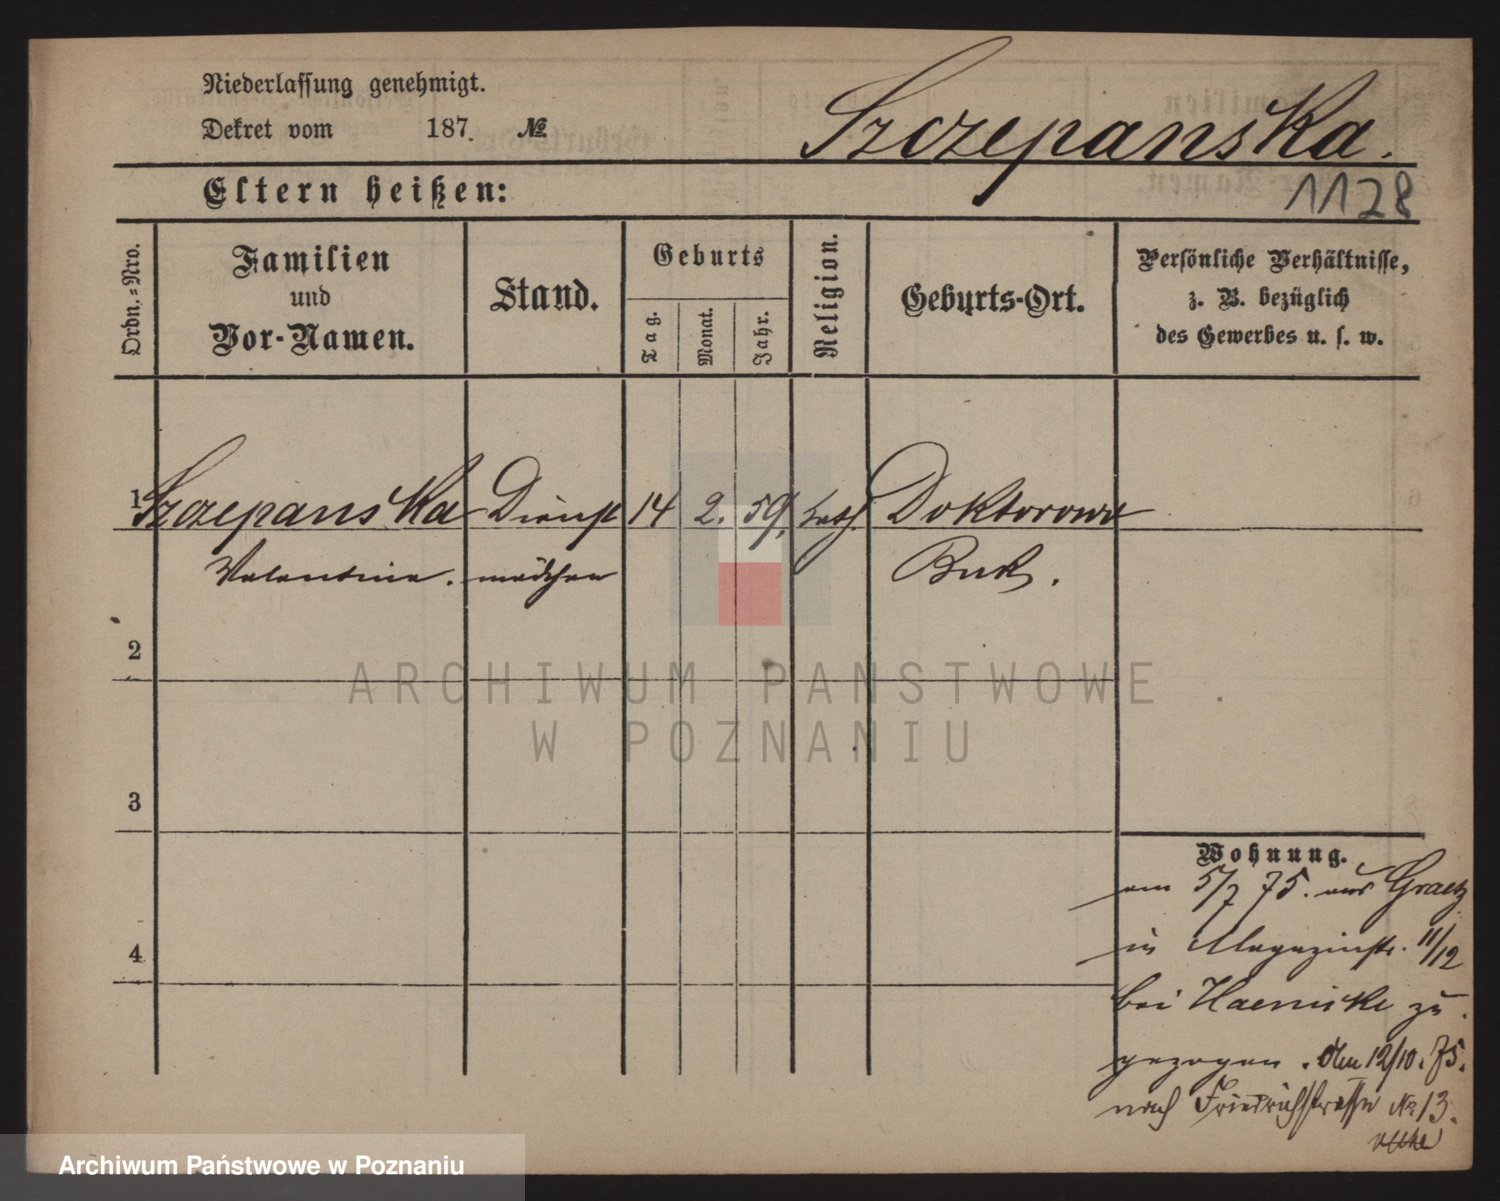 Niederlassung genehmigt.
Dekret vom 187 №
Szczepanska.
Eltern heißen:
1128
Ordn.-Nro.
Familien
und
Vor-Namen.
Stand.
Geburts
Tag.
Monat.
Jahr.
Religion.
Geburts-Ort.
Persönliche Verhältnisse,
z. B. bezüglich
des Gewerbes u. s. w.
1 Szczepanska Dienst 14 2. 59. kath. Doktorowo
Valentine. mädchen Buk.
2
3
4
Wohnung.
am 5/7 75. aus Graetz
in Magazinstr. 11/12
bei Haeniske zu
gezogen. Am 12/10. 75.
nach Friedrichstrasse No 13.
ARCHIWUM PAŃSTWOWE
W POZNANIU
Archiwum Państwowe w Poznaniu